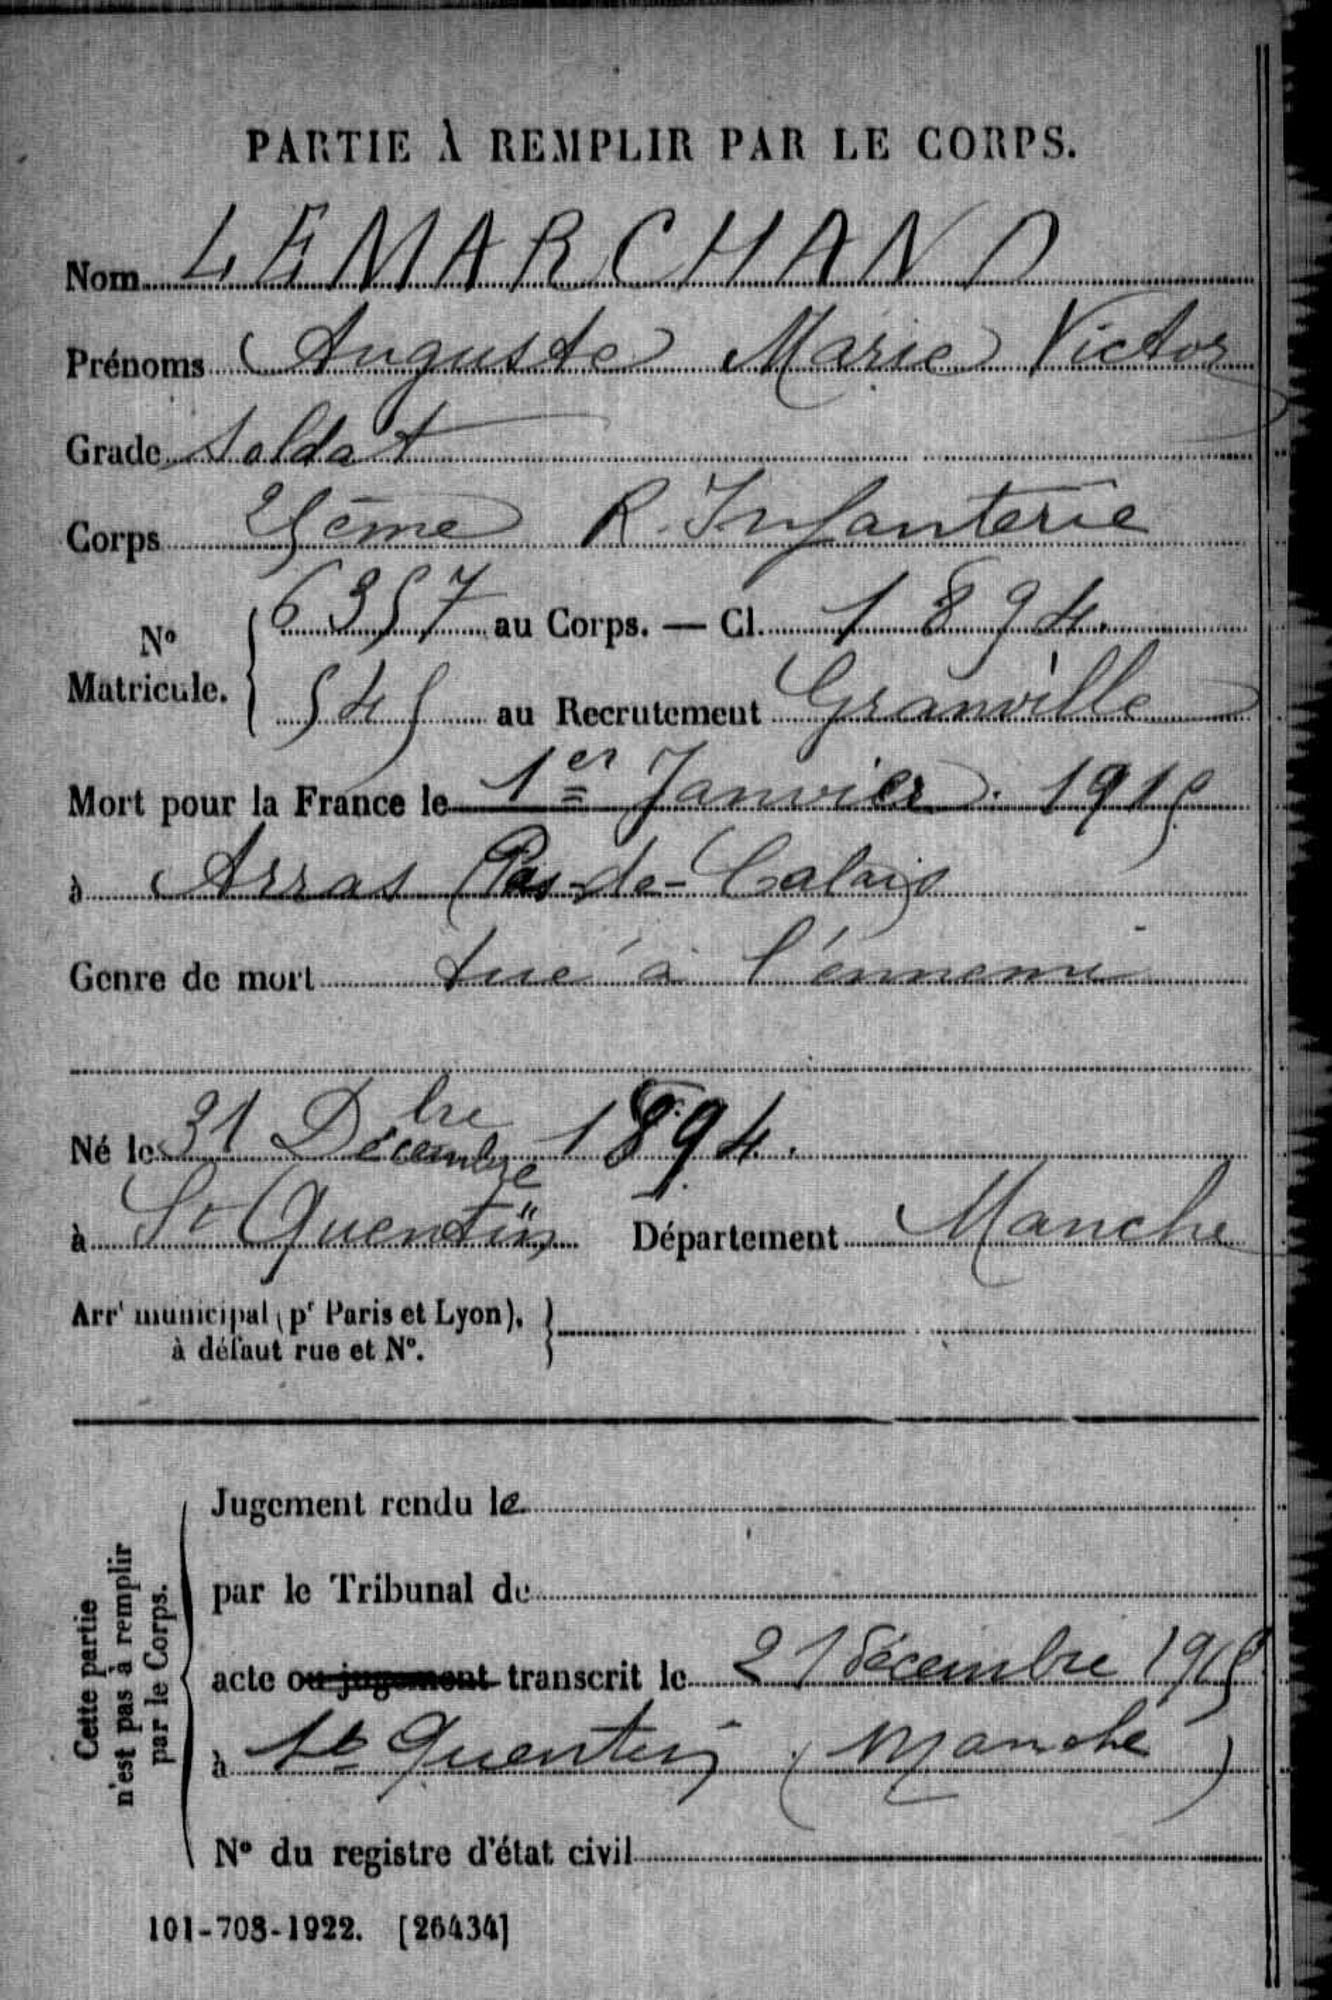 PARTIE À REMPLIR PAR LE CORPS.
Nom LEMARCHAND
Prénoms Auguste Marie Victor
Grade Soldat
Corps 25ème R. Infanterie
N° Matricule. { 6357 au Corps. — Cl. 1894.
545 au Recrutement Granville
Mort pour la France le 1er Janvier 1915
à Arras (Pas-de-Calais)
Genre de mort tué à l'ennemi
Né le 31 Dbre Décembre 1894.
à St Quentin Département Manche
Arrt municipal (pr Paris et Lyon), }
à défaut rue et N°.
Cette partie
n'est pas à remplir
par le Corps.
Jugement rendu le
par le Tribunal de
acte ou jugement transcrit le 21 décembre 1915
à St Quentin (Manche)
N° du registre d'état civil
101-708-1922. [26434]